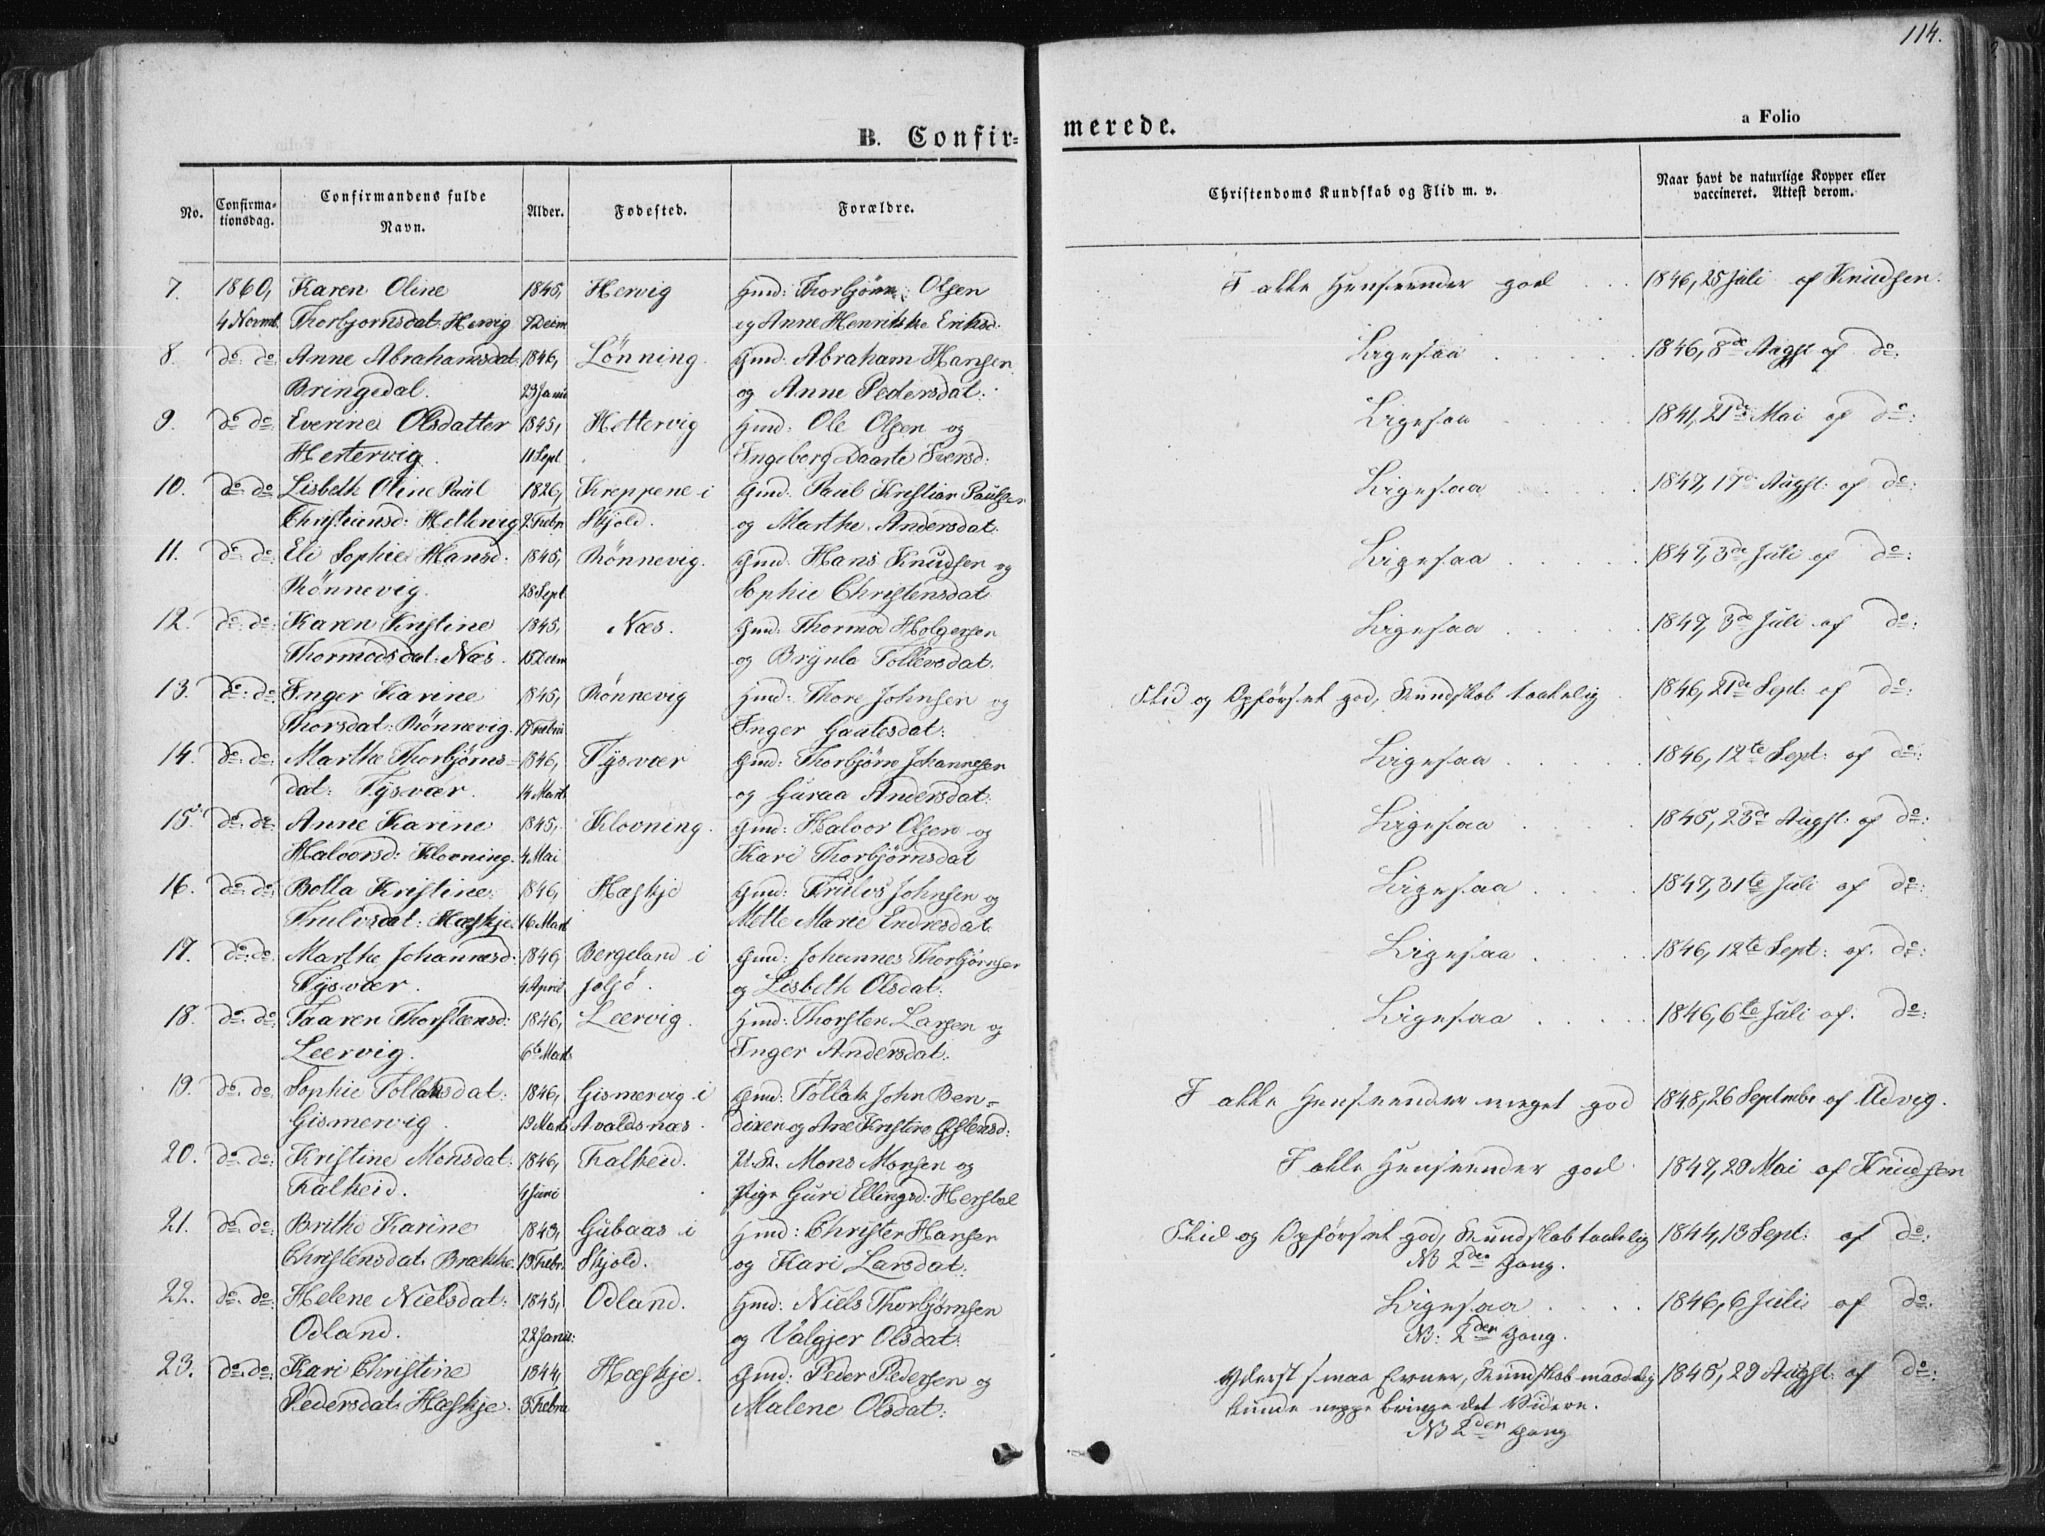 114.
B. Confir=
merede.
a Folio
No.
Confirma-
tionsdag.
Confirmandens fulde
Navn.
Alder.
Fødested.
Forældre.
Christendoms Kundskab og Flid m. v.
Naar havt de naturlige Kopper eller
vaccineret. Attest derom.
7. 1860, Karen Oline 1845, Hervig Gmd: Thorbjørn Olsen I alle Henseender god 1846, 25 Juli af Knudsen.
4 Novmb. Thorbjornsdat: Hervig og Anne Henrikke Eriksd:
8. do do Anne Abrahamsdat 1846, Lönning. Gmd: Abraham Hansen Ligesaa 1846, 8de Augst af do:
Bringedal. 23 Janu og Anne Pedersdat:
9. do do: Everine Olsdatter 1845, Hettervig Gmd: Ole Olsen og Ligesaa 1841, 21de Mai af do:
Hettervig. 11 Sept. Ingeborg Daarte Iversd:
10. do do Lisbeth Oline Paul 1826, Kreppene i Gmd: Paul Kristian Paulsen Ligesaa 1847, 17de Augst: af do:
Christiansd: Hettervig 2 Febr. Skjold. og Marthe Andersdat.
11. do do: Eli Sophie Hansd: 1845, Rönnevig. Gmd: Hans Knudsen og Ligesaa 1847, 3de Juli af do:
Rönnevig. 28 Sept Sophie Christensdat
12. do: do: Karen Kristine 1845, Næs. Gmd: Thormod Holgersen Ligesaa 1847, 3de Juli af do:
Thormodsdat: Næs. og Brynla Tollevsdat.
13. do: do: Inger Karine 1845, Rönnevig Gmd: Thore Johnsen og Flid og Opførsel god, Kundskab taalelig 1846, 21de Sept: af do:
Thorsdat: Rönnevig. Inger Gautesdat:
14. do: do: Marthe Thorbjørns- 1846, Tysvær Gmd: Thorbjørn Johannesen Ligesaa 1846, 12te Sept: af do:
dat: Tysvær. 14 Marts og Guraa Andersdat:
15. do: do: Anne Karine 1845, Klovning. Gmd: Halvor Olsen og Ligesaa 1845, 23de Augst: af do:
Halvorsd: Klovning. 4 Mai Kari Thorbjørnsdat
16. do: do: Bolla Kristine 1846, Hæskje Gmd: Trulvs Johnsen og Ligesaa 1847, 31te Juli af do:
Trulvsdat: Hæskje. 16 Mart Mette Marie Endresdat
17. do: do: Marthe Johannesd: 1846, Bergeland i Gmd: Johannes Thorbjørnsen Ligesaa 1846, 12te Sept: af. do:
Tysvær. 4 April og Lisbeth Olsdat:
18. do: do: Taaren Thorsteensd: 1846, Leervig. Gmd: Thorsten Larsen og Ligesaa 1846, 6te Juli af. do:
Leervig. 6te Marts Inger Andersdat:
19. do: do: Sophie Tollaksdat: 1846, Gismervig i Gmd: Tollak John Ben= I alle Henseender meget god 1848, 26 Septmbr af Udvig.
Gismervig. 19 Marts Avaldsnæs. dixen og Ane Kristine
20. do: do: Kristine Monsdat: 1846, Falkeid. Mons Monsen og I alle Henseender god. 1847, 20 Mai af Knudsen
Falkeid. 4 Juni Pige Guri Ellingsd: Herstøl
21. do: do: Brithe Karine 1843, Gubaas i Gmd: Christen Hansen Flid og Opførsel god, Kundskab taalelig 1844, 13 Sept: af do:
Christensdat: Brække. 13 Febr. Skjold. og Kari Larsdat: NB 2den Gang.
22. do: do: Helene Nielsdat: 1845, Odland. Gmd: Niels Thorbjørnsen Ligesaa 1846, 6 Juli af do:
Odland. 22 Janu: og Valgjer Olsdat: NB: 2den Gang.
23. do: do: Kari Christine 1844, Hæskje. Gmd: Peder Pedersen og Yderst smaa Evner, Kundskab maadelig 1845, 29 Augst: af do:
Pedersdat: Hæskje. 3 Febru Malene Olsdat: kunde neppe bringe det videre.
NB 2den Gang